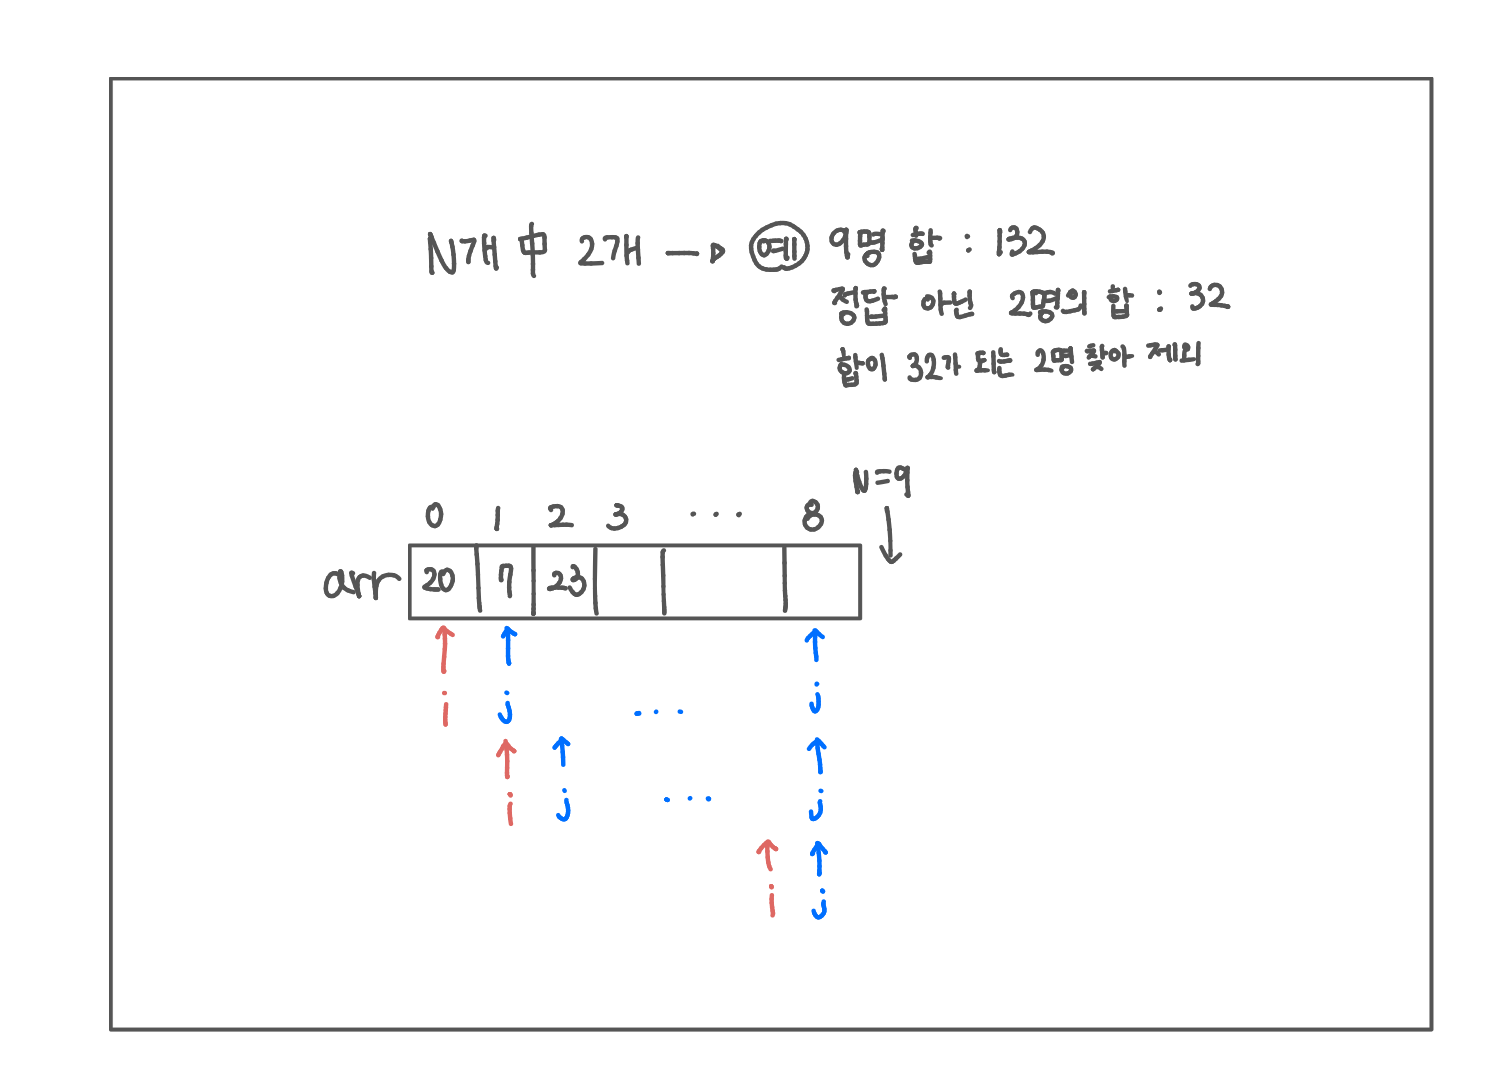 N개 中 2개 → 예 9명 합 : 132
정답 아닌 2명의 합 : 32
합이 32가 되는 2명 찾아 제외
N=9
0 1 2 3 ... 8
arr 20 7 23
i j ... j
i j ... j
i j